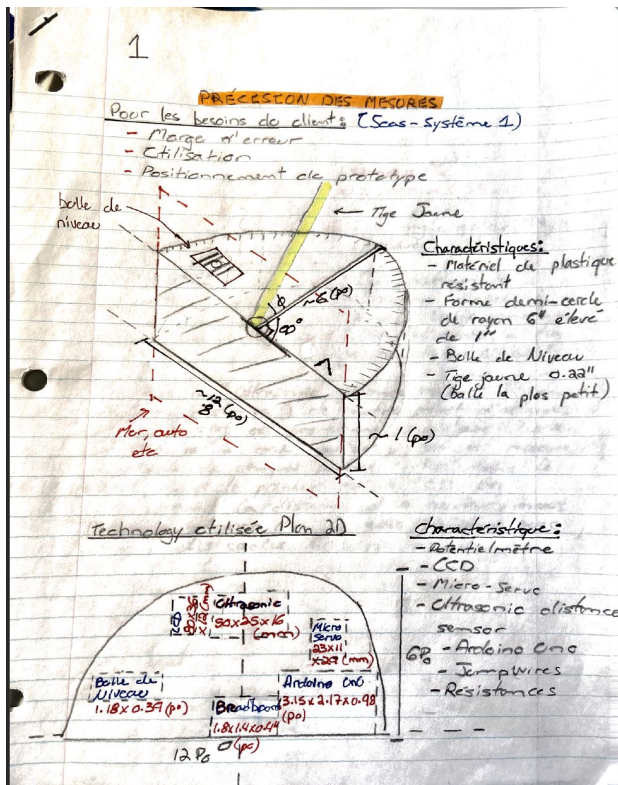 1
PRÉCISION DES MESURES
Pour les besoins du client: (Sous-système 1)
- Marge d'erreur
- Utilisation
- Positionnement de prototype
bulle de
niveau
← Tige Jaune
ϕ
~6 (po)
90°
~12 (po)
8
~1 (po)
Mur, auto
etc
Charactéristiques:
- Matériel de plastique
résistant
- Forme demi-cercle
de rayon 6" élevé
de 1"
- Bulle de Niveau
- Tige jaune 0.22"
(balle la plus petit)
Technology utilisée Plan 2D
Ultrasonic
50x25x16
(mm)
Micro
Servo
23x11
x29 (mm)
Bulle de
Niveau
1.18x0.39 (po)
Breadbord
1.8x1.4x0.44
(po)
Arduino UNO
3.15x2.17x0.98
(po)
12 Po
6Po
Charactéristique:
- Potentielmètre
- CCD
- Micro-Servo
- Ultrasonic distance
sensor
- Arduino Uno
- Jumpwires
- Résistances